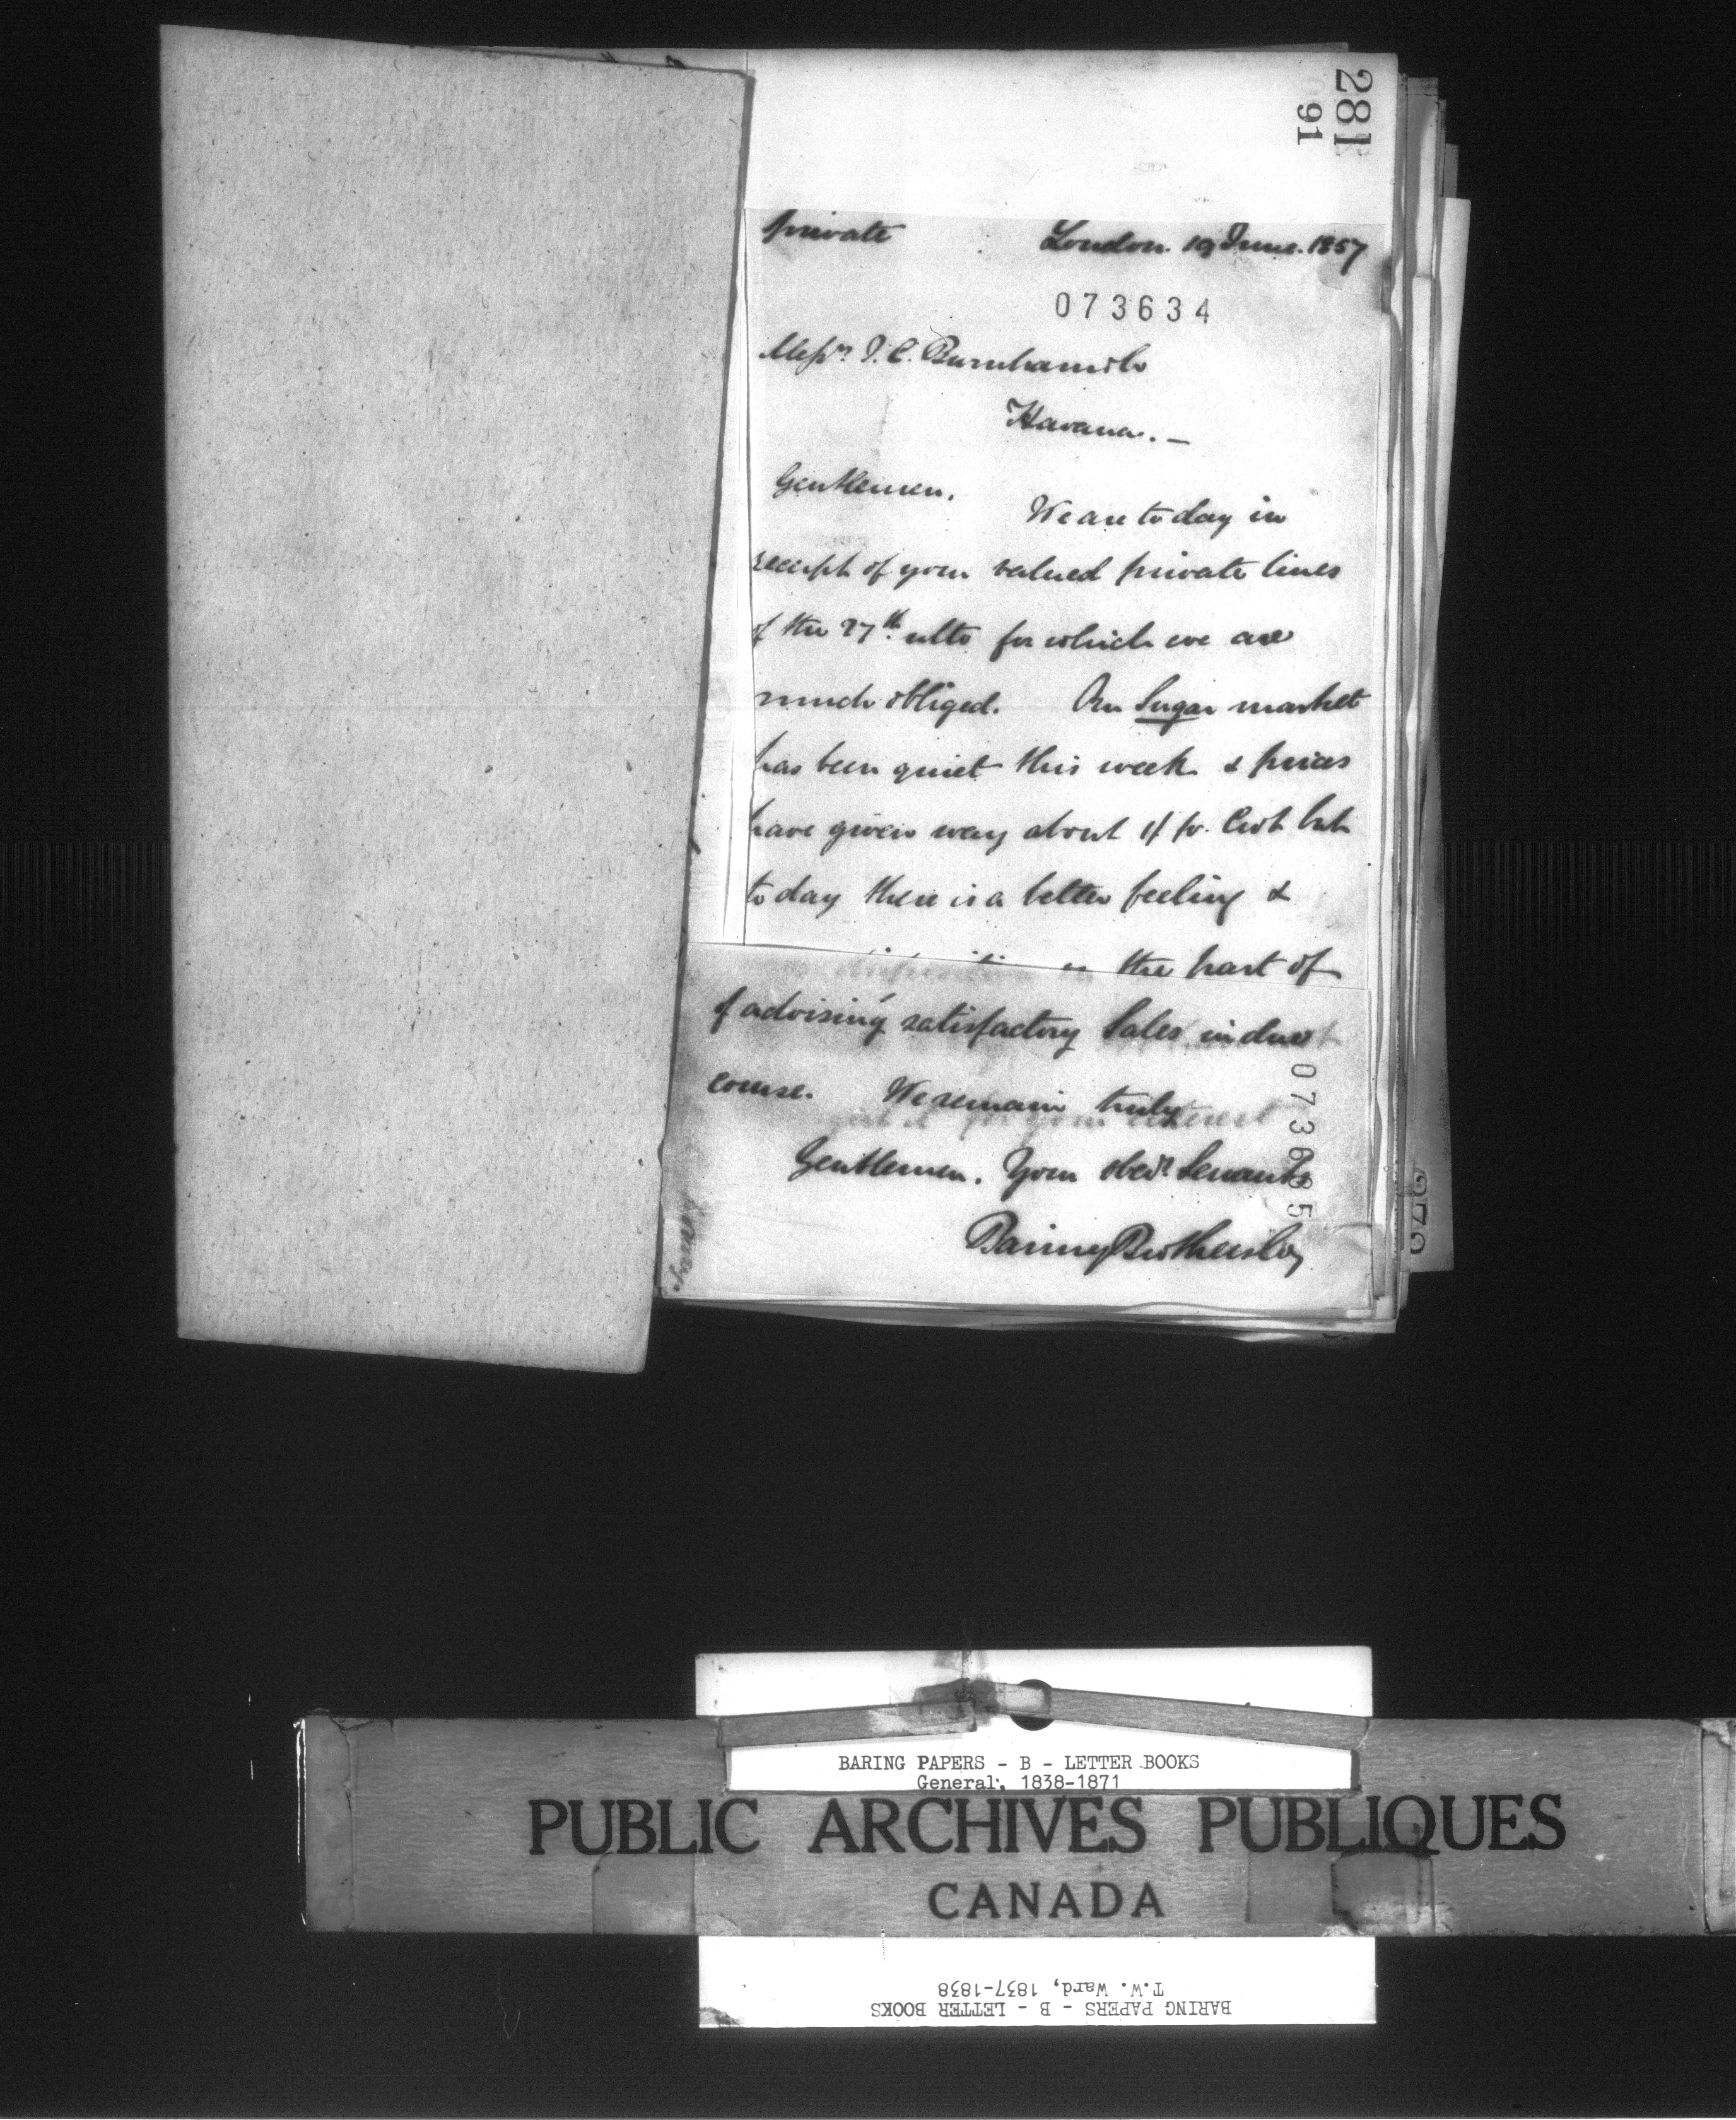 281
91
private London. 19 June. 1857
073634
Messrs. J. C. Burnham & Co
Havana. —
Gentlemen. We are to day in
receipt of your valued private lines
of the 27th. ulto for which we are
much obliged. Our Sugar market
has been quiet this week & prices
have given way about 1/ pr. Cwt but
to day there is a better feeling &
the part of
of advising satisfactory Sales in due
course. We remain truly
073635
Gentlemen. Your obedt. Servants
Baring Brothers & Co
272
BARING PAPERS - B - LETTER BOOKS
General, 1838-1871
PUBLIC ARCHIVES PUBLIQUES
CANADA
T.W. Ward, 1837-1838
BARING PAPERS - B - LETTER BOOKS